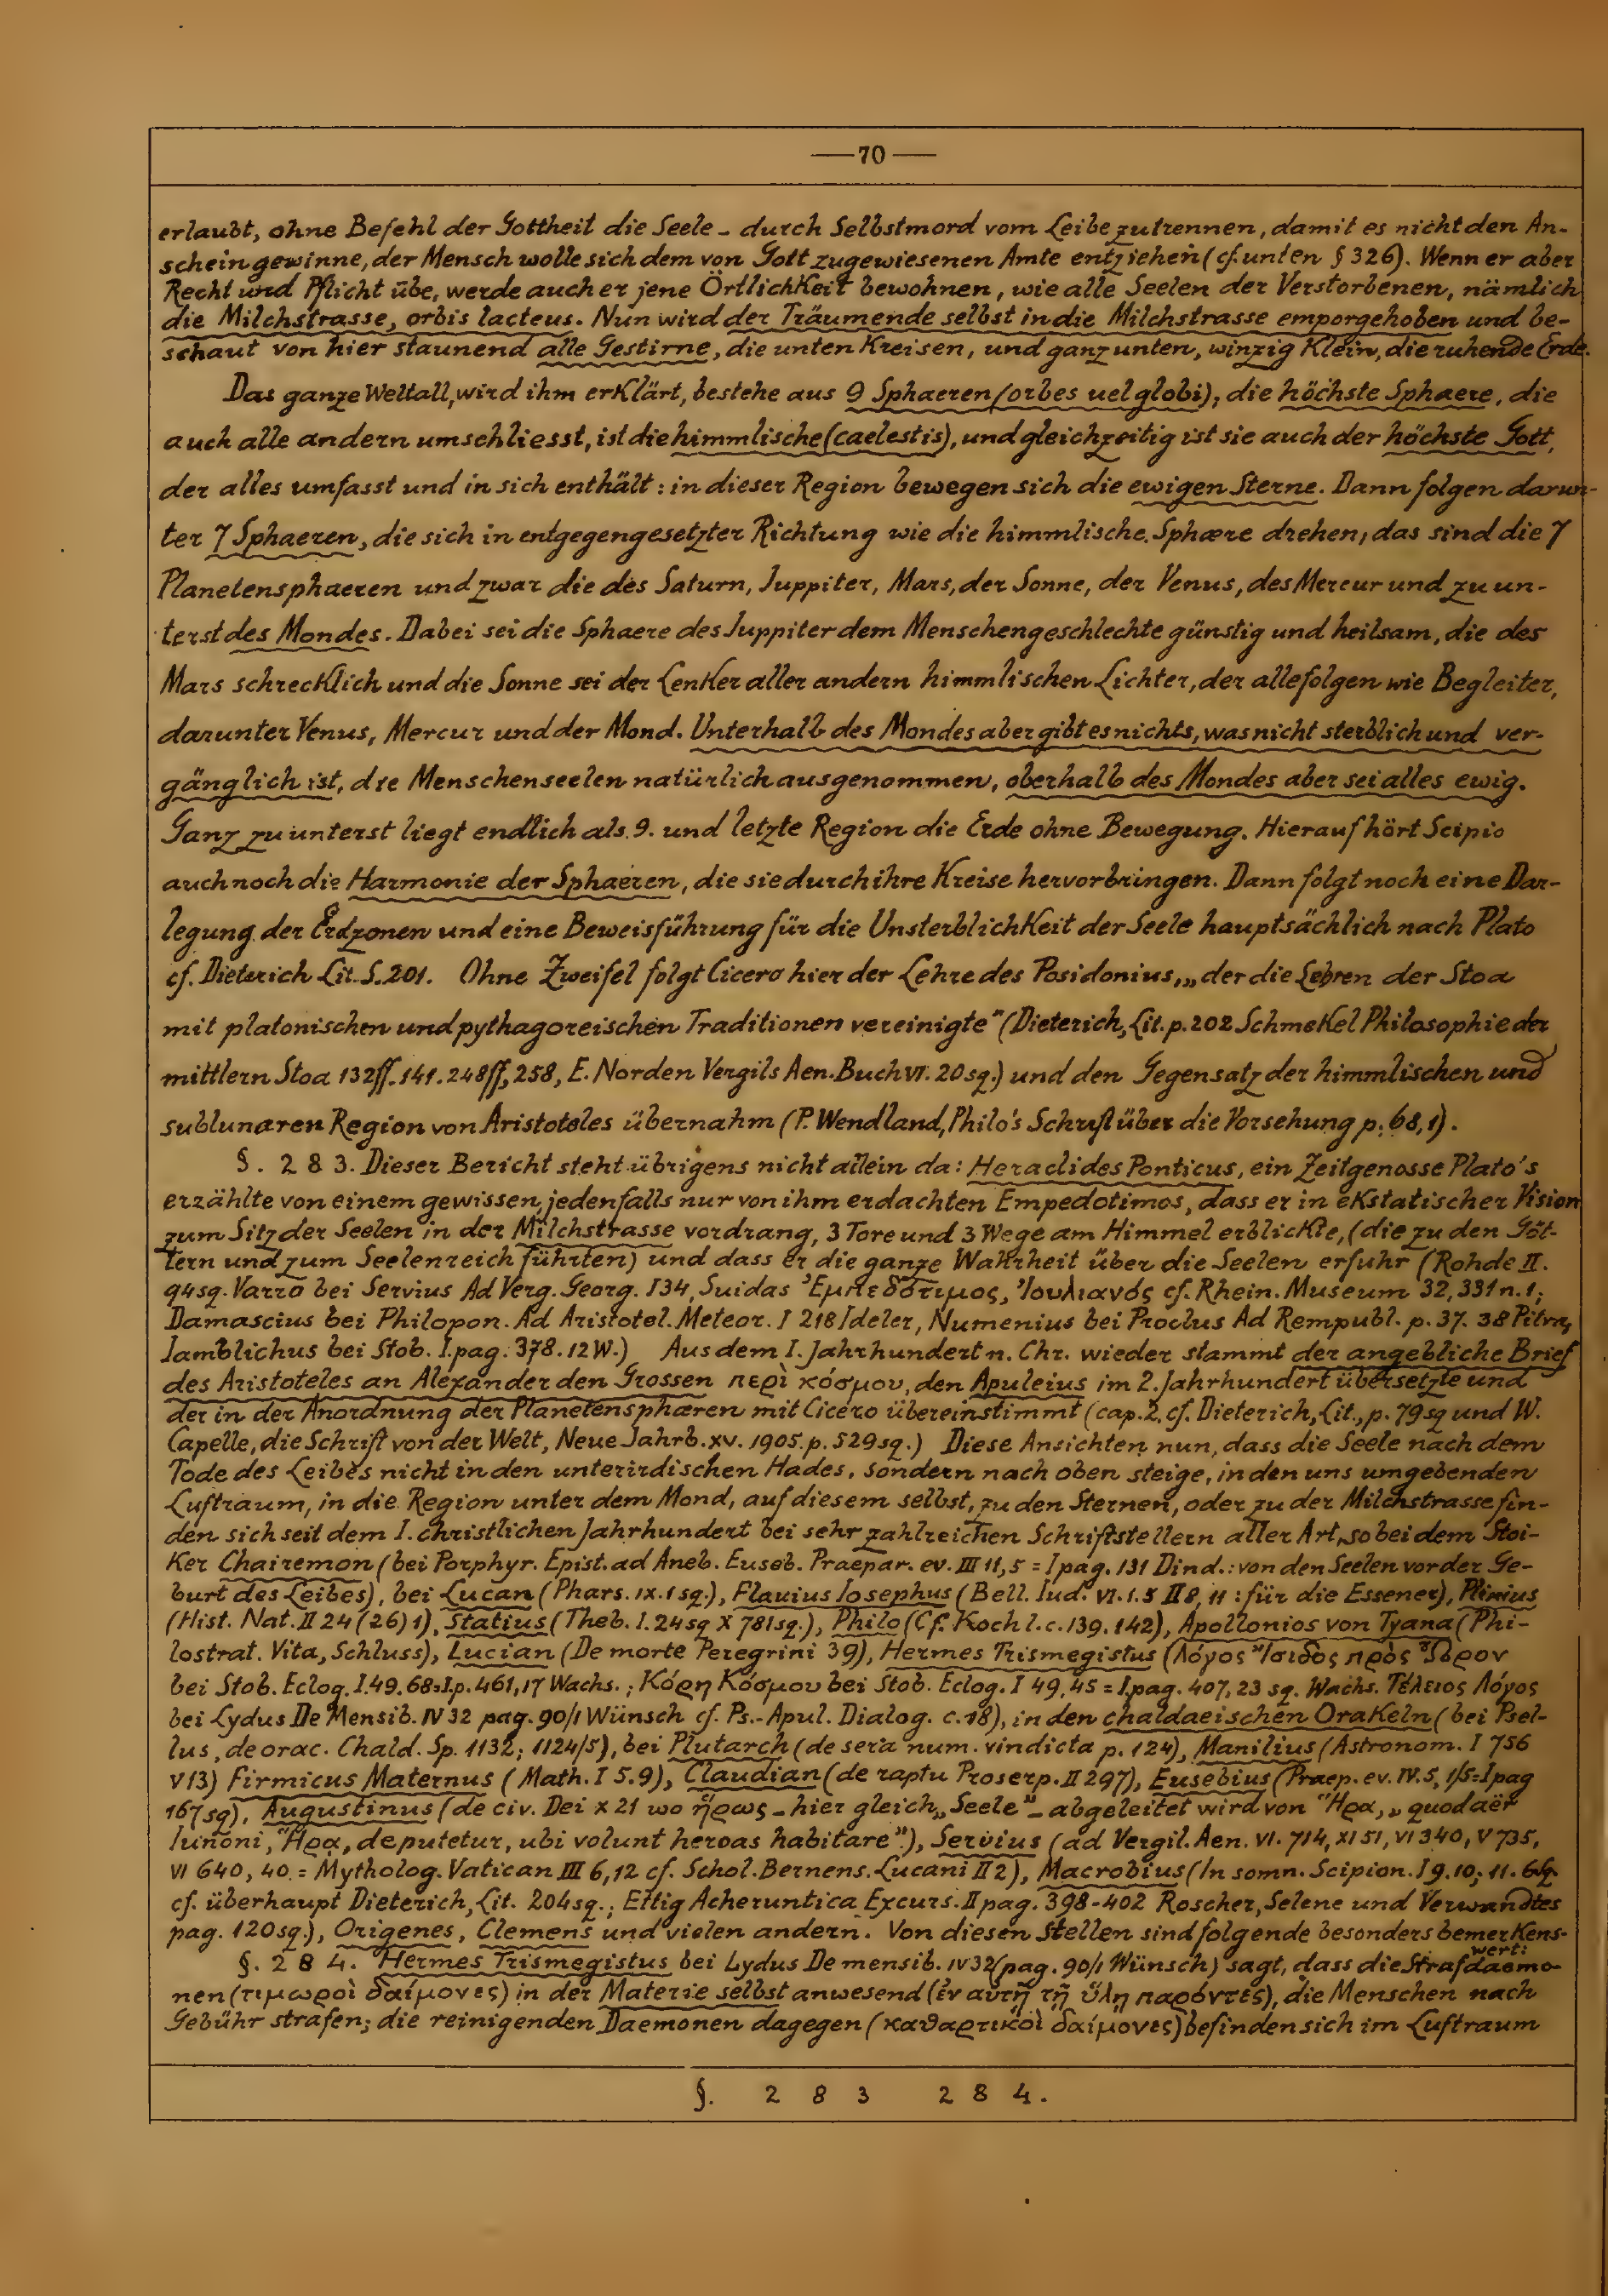 —70—
erlaubt, ohne Befehl der Gottheit die Seele - durch Selbstmord vom Leibe zutrennen, damit es nicht den An-
schein gewinne, der Mensch wolle sich dem von Gott zugewiesenen Amte entziehen (cf. unten § 326). Wenn er aber
Recht und Pflicht übe, werde auch er jene Örtlichkeit bewohnen, wie alle Seelen der Verstorbenen, nämlich
die Milchstrasse, orbis lacteus. Nun wird der Träumende selbst in die Milchstrasse emporgehoben und be-
schaut von hier staunend alle Gestirne, die unten kreisen, und ganz unten, winzig klein, die ruhende Erde.
Das ganze Weltall, wird ihm erklärt, bestehe aus 9 Sphaeren (orbes uel globi), die höchste Sphaere, die
auch alle andern umschliesst, ist die himmlische (caelestis), und gleichzeitig ist sie auch der höchste Gott,
der alles umfasst und in sich enthält: in dieser Region bewegen sich die ewigen Sterne. Dann folgen darun-
ter 7 Sphaeren, die sich in entgegengesetzter Richtung wie die himmlische Sphaere drehen, das sind die 7
Planetensphaeren und zwar die des Saturn, Juppiter, Mars, der Sonne, der Venus, des Mercur und zu un-
terst des Mondes. Dabei sei die Sphaere des Juppiter dem Menschengeschlechte günstig und heilsam, die des
Mars schrecklich und die Sonne sei der Lenker aller andern himmlischen Lichter, der alle folgen wie Begleiter,
darunter Venus, Mercur und der Mond. Unterhalb des Mondes aber gibt es nichts, was nicht sterblich und ver-
gänglich ist, die Menschenseelen natürlich ausgenommen, oberhalb des Mondes aber sei alles ewig.
Ganz zu unterst liegt endlich als 9. und letzte Region die Erde ohne Bewegung. Hierauf hört Scipio
auch noch die Harmonie der Sphaeren, die sie durch ihre Kreise hervorbringen. Dann folgt noch eine Dar-
legung der Erdzonen und eine Beweisführung für die Unsterblichkeit der Seele hauptsächlich nach Plato
cf. Dieterich Lit. S. 201. Ohne Zweifel folgt Cicero hier der Lehre des Posidonius, „der die Lehren der Stoa
mit platonischen und pythagoreischen Traditionen vereinigte" (Dieterich, Lit. p. 202 Schmekel Philosophie der
mittlern Stoa 132ff. 141. 248ff, 258, E. Norden Vergils Aen. Buch VI. 20sq.) und den Gegensatz der himmlischen und
sublunaren Region von Aristoteles übernahm (P. Wendland, Philo's Schrift über die Vorsehung p. 68, 1).
§. 283. Dieser Bericht steht übrigens nicht allein da: Heraclides Ponticus, ein Zeitgenosse Plato's
erzählte von einem gewissen, jedenfalls nur von ihm erdachten Empedotimos, dass er in ekstatischer Vision
zum Sitz der Seelen in der Milchstrasse vordrang, 3 Tore und 3 Wege am Himmel erblickte, (die zu den Göt-
tern und zum Seelenreich führten) und dass er die ganze Wahrheit über die Seelen erfuhr (Rohde II.
94sq. Varro bei Servius Ad Verg. Georg. I 34, Suidas Ἐμπεδότιμος, Ἰουλιανός cf. Rhein. Museum 32, 331 n. 1;
Damascius bei Philopon. Ad Aristotel. Meteor. I 218 Ideler, Numenius bei Proclus Ad Rempubl. p. 37. 38 Pitra,
Iamblichus bei Stob. I. pag. 378. 12 W.) Aus dem I. Jahrhundert n. Chr. wieder stammt der angebliche Brief
des Aristoteles an Alexander den Grossen περὶ κόσμου, den Apuleius im 2. Jahrhundert übersetzte und
der in der Anordnung der Planetensphaeren mit Cicero übereinstimmt (cap. 2, cf. Dieterich, Lit., p. 79sq und W.
Capelle, die Schrift von der Welt, Neue Jahrb. XV. 1905. p. 529sq.) Diese Ansichten nun, dass die Seele nach dem
Tode des Leibes nicht in den unterirdischen Hades, sondern nach oben steige, in den uns umgebenden
Luftraum, in die Region unter dem Mond, auf diesem selbst, zu den Sternen, oder zu der Milchstrasse fin-
den sich seit dem I. christlichen Jahrhundert bei sehr zahlreichen Schriftstellern aller Art, so bei dem Stoi-
ker Chairemon (bei Porphyr. Epist. ad Aneb. Euseb. Praepar. ev. III 11, 5 = I pag. 131 Dind.: von den Seelen vor der Ge-
burt des Leibes), bei Lucan (Phars. IX. 1 sq.), Flavius Iosephus (Bell. Iud. VI. 1. 5 II 8, 11: für die Essener), Plinius
(Hist. Nat. II 24 (26) 1), Statius (Theb. I. 24sq X 781sq.), Philo (Cf. Koch l. c. 139. 142), Apollonios von Tyana (Phi-
lostrat. Vita, Schluss), Lucian (De morte Peregrini 39), Hermes Trismegistus (Λόγος Ἴσιδος πρὸς Ὧρον
bei Stob. Eclog. I. 49. 68 = I. p. 461, 17 Wachs.; Κόρη Κόσμου bei Stob. Eclog. I 49, 45 = I. pag. 407, 23 sq. Wachs. Τέλειος Λόγος
bei Lydus De Mensib. IV 32 pag. 90/1 Wünsch cf. Ps.-Apul. Dialog. c. 18), in den chaldaeischen Orakeln (bei Psel-
lus, de orac. Chald. Sp. 1132; 1124/5), bei Plutarch (de sera num. vindicta p. 124), Manilius (Astronom. I 756
V 13) Firmicus Maternus (Math. I 5. 9), Claudian (de raptu Proserp. II 297), Eusebius (Praep. ev. IV. 5, 1/5 = I pag
167sq), Augustinus (de civ. Dei X 21 wo ἥρως - hier gleich „Seele" - abgeleitet wird von Ἥρα, „quod aër
Iunoni, Ἥρα, deputetur, ubi volunt heroas habitare".), Servius (ad Vergil. Aen. VI. 714, XI 51, VI 340, V 735,
VI 640, 40. = Mytholog. Vatican III 6, 12 cf. Schol. Bernens. Lucani II 2), Macrobius (In somn. Scipion. I 9. 10; 11. 6sq.
cf. überhaupt Dieterich, Lit. 204sq.; Ettig Acheruntica Excurs. II pag. 398-402 Roscher, Selene und Verwandtes
pag. 120sq.), Origenes, Clemens und vielen andern. Von diesen Stellen sind folgende besonders bemerkens-
wert:
§. 284. Hermes Trismegistus bei Lydus De mensib. IV 32 (pag. 90/1 Wünsch) sagt, dass die Strafdaemo-
nen (τιμωροὶ δαίμονες) in der Materie selbst anwesend (ἐν αὐτῇ τῇ ὕλῃ παρόντες), die Menschen nach
Gebühr strafen; die reinigenden Daemonen dagegen (καθαρτικοὶ δαίμονες) befinden sich im Luftraum
§. 283 284.